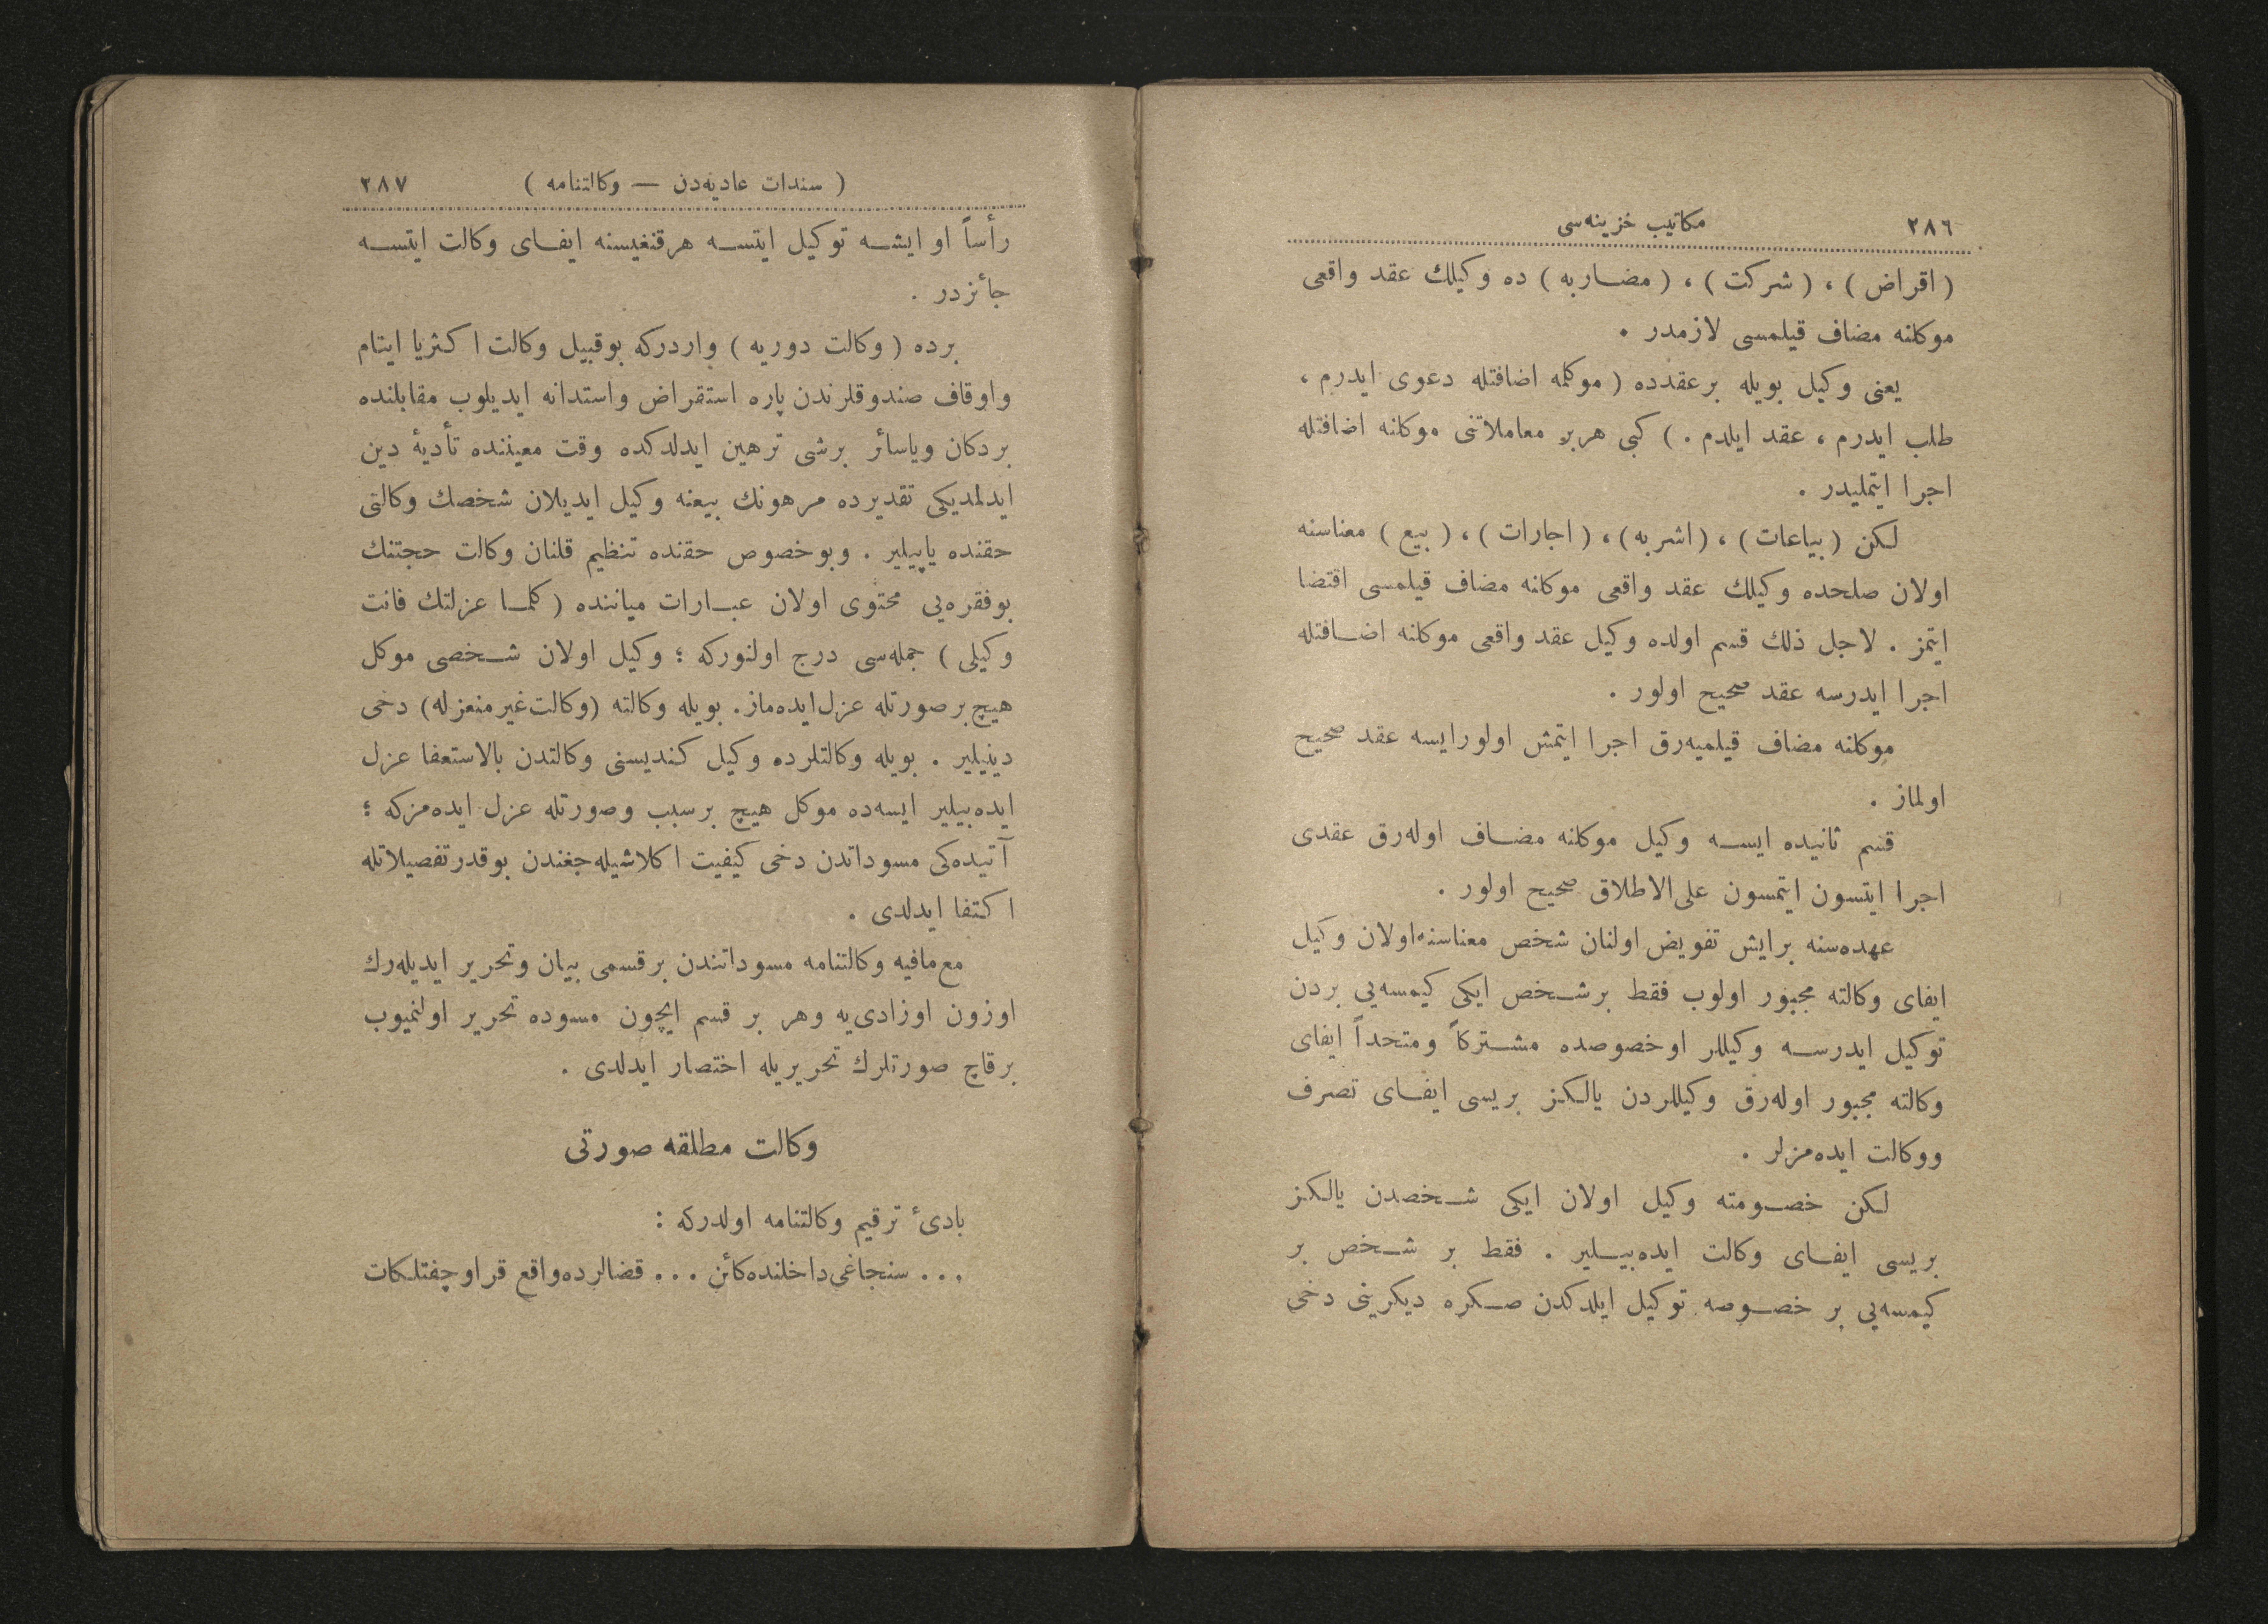 ٢٨٦ مكاتيب خزينه‌سى
(اقراض) ، (شركت) ، (مضاربه) ده وكيلك عقد واقعى
موكلنه مضاف قيلمسى لازمدر .
يعنى وكيل بويله برعقدده (موكلمه اضافتله دعوى ايدرم ،
طلب ايدرم ، عقد ايلدم .) كبى هربر معاملاتنى موكلنه اضافتله
اجرا ايتمليدر .
لكن (بياعات) ، (اشربه) ، (اجارات) ، (بيع) معناسنه
اولان صلحده وكيلك عقد واقعى موكلنه مضاف قيلمسى اقتضا
ايتمز . لاجل ذلك قسم اولده وكيل عقد واقعى موكلنه اضافتله
اجرا ايدرسه عقد صحيح اولور .
موكلنه مضاف قيلميه‌رق اجرا ايتمش اولورايسه عقد صحيح
اولماز .
قسم ثانيده ايسه وكيل موكلنه مضاف اوله‌رق عقدى
اجرا ايتسون ايتمسون على‌الاطلاق صحيح اولور .
عهده‌سنه برايش تفويض اولنان شخص معناسنه‌اولان وكيل
ايفاى وكالته مجبور اولوب فقط برشخص ايكى كيمسه‌يى بردن
توكيل ايدرسه وكيللر اوخصوصده مشتركاً ومتحداً ايفاى
وكالته مجبور اوله‌رق وكيللردن يالكز بريسى ايفاى تصرف
ووكالت ايده‌مزلر .
لكن خصومته وكيل اولان ايكى شخصدن يالكز
بريسى ايفاى وكالت ايده‌بيلير . فقط بر شخص بر
كيمسه‌يى بر خصوصه توكيل ايلدكدن صكره ديكرينى دخى
(سندات عاديه‌دن — وكالتنامه) ٢٨٧
رأساً او ايشه توكيل ايتسه هرقنغيسنه ايفاى وكالت ايتسه
جائزدر .
برده (وكالت دوريه) واردركه بوقبيل وكالت اكثريا ايتام
واوقاف صندوقلرندن پاره استقراض واستدانه ايديلوب مقابلنده
بردكان وياسائر برشى ترهين ايدلدكده وقت معيننده تأديهٔ دين
ايدلمديكى تقديرده مرهونك بيعنه وكيل ايديلان شخصك وكالتى
حقنده ياپيلير . وبوخصوص حقنده تنظيم قلنان وكالت حجتنك
بوفقره‌يى محتوى اولان عبارات ميباننده (كلما عزلتك فانت
وكيلى) جمله‌سى درج اولنوركه ؛ وكيل اولان شخصى موكل
هيچ برصورتله عزل‌ايده‌ماز. بويله وكالته (وكالت‌غيرمنعزله) دخى
دينيلير . بويله وكالتلرده وكيل كنديسنى وكالتدن بالاستعفا عزل
ايده‌بيلير ايسه‌ده موكل هيچ برسبب وصورتله عزل ايده‌مزكه ؛
آتيده‌كى مسوداتدن دخى كيفيت اكلاشيله‌جغندن بوقدرتفصيلاتله
اكتفا ايدلدى .
مع‌مافيه وكالتنامه مسوداتندن برقسمى بيان وتحرير ايديله‌رك
اوزون اوزادى‌يه وهر بر قسم ايچون مسوده تحرير اولنميوب
برقاچ صورتلرك تحريريله اختصار ايدلدى .
وكالت مطلقه صورتى
بادىٔ ترقيم وكالتنامه اولدركه :
... سنجاغى‌داخلنده‌كائن ... قضالرده‌واقع قراوچفتلكات